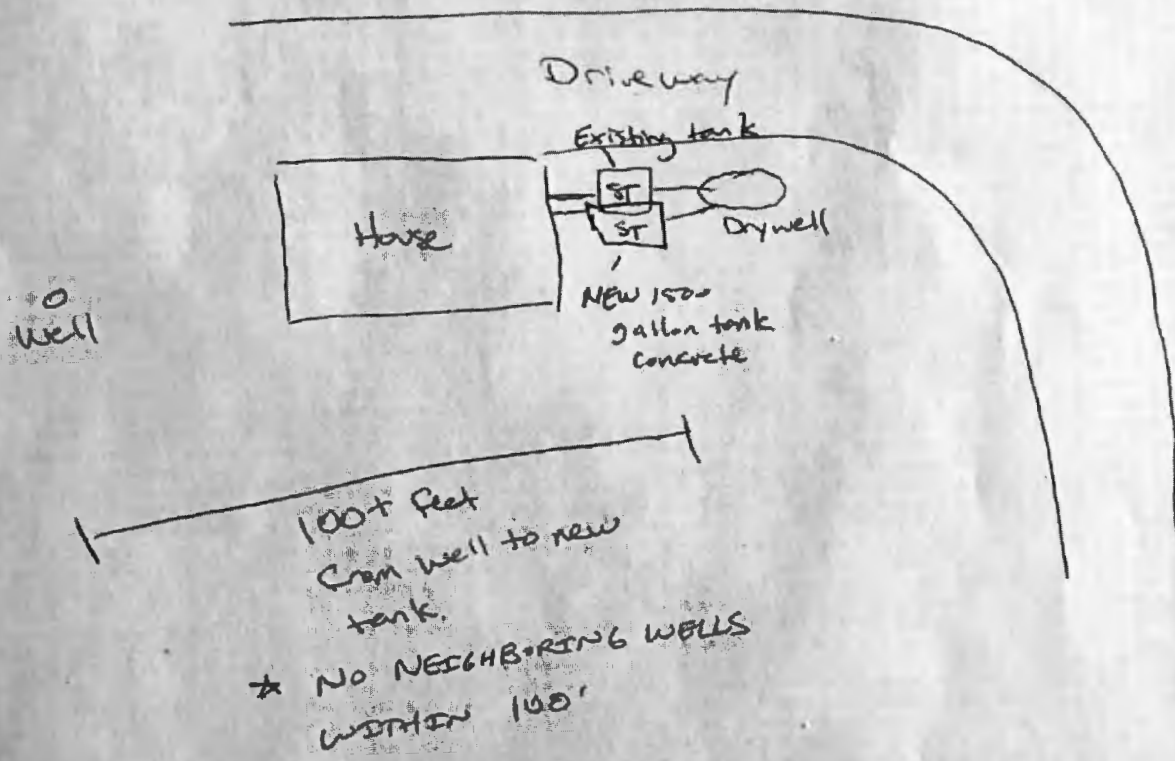 Driveway
Existing tank
ST
House
ST
Drywell
Well
NEW 1500
gallon tank
concrete
100+ feet
from well to new
tank.
* NO NEIGHBORING WELLS
WITHIN 100'